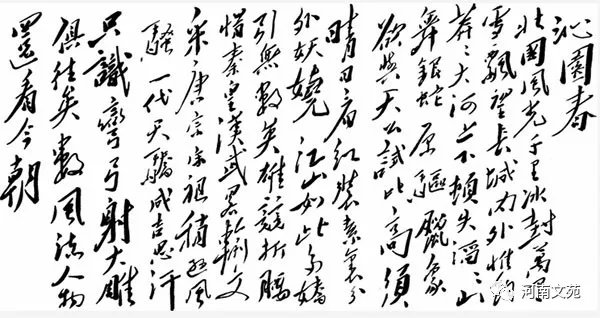 沁園春
北國風光千里冰封萬里
雪飄望長城內外惟余
莽々大河上下頓失滔々山
舞銀蛇原驅臘象
欲與天公試比高須
晴日看紅裝素裹分
外妖嬈江山如此多嬌
引無數英雄競折腰
惜秦皇漢武略輸文
采唐宗宋祖稍遜風
騷一代天驕成吉思汗
只識彎弓射大雕
俱往矣數風流人物
還看今朝
河南文苑